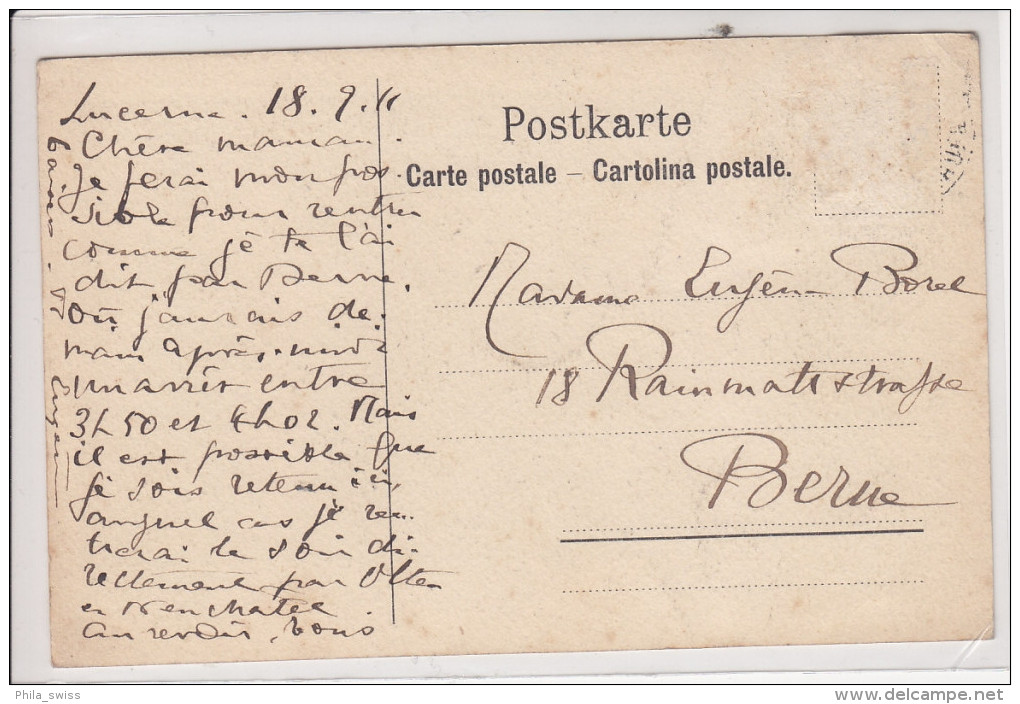 Lucerne. 18. 9. 11
Chère maman.
Je ferai mon pos-
sible pour rentrer
comme je te l'ai
dit par Berne,
où j'aurais de-
main après-midi
un arrêt entre
3h 50 et 4h 02. Mais
il est possible que
je sois retenu ici,
auquel cas je ren-
trerai le soir di-
rectement par Olten
et Neuchâtel.
Au revoir, bons
baisers.
Eugène
Postkarte
Carte postale – Cartolina postale.
Madame Eugène Borel
18 Rainmattstrasse
Berne
Phila_swiss
www.delcampe.net